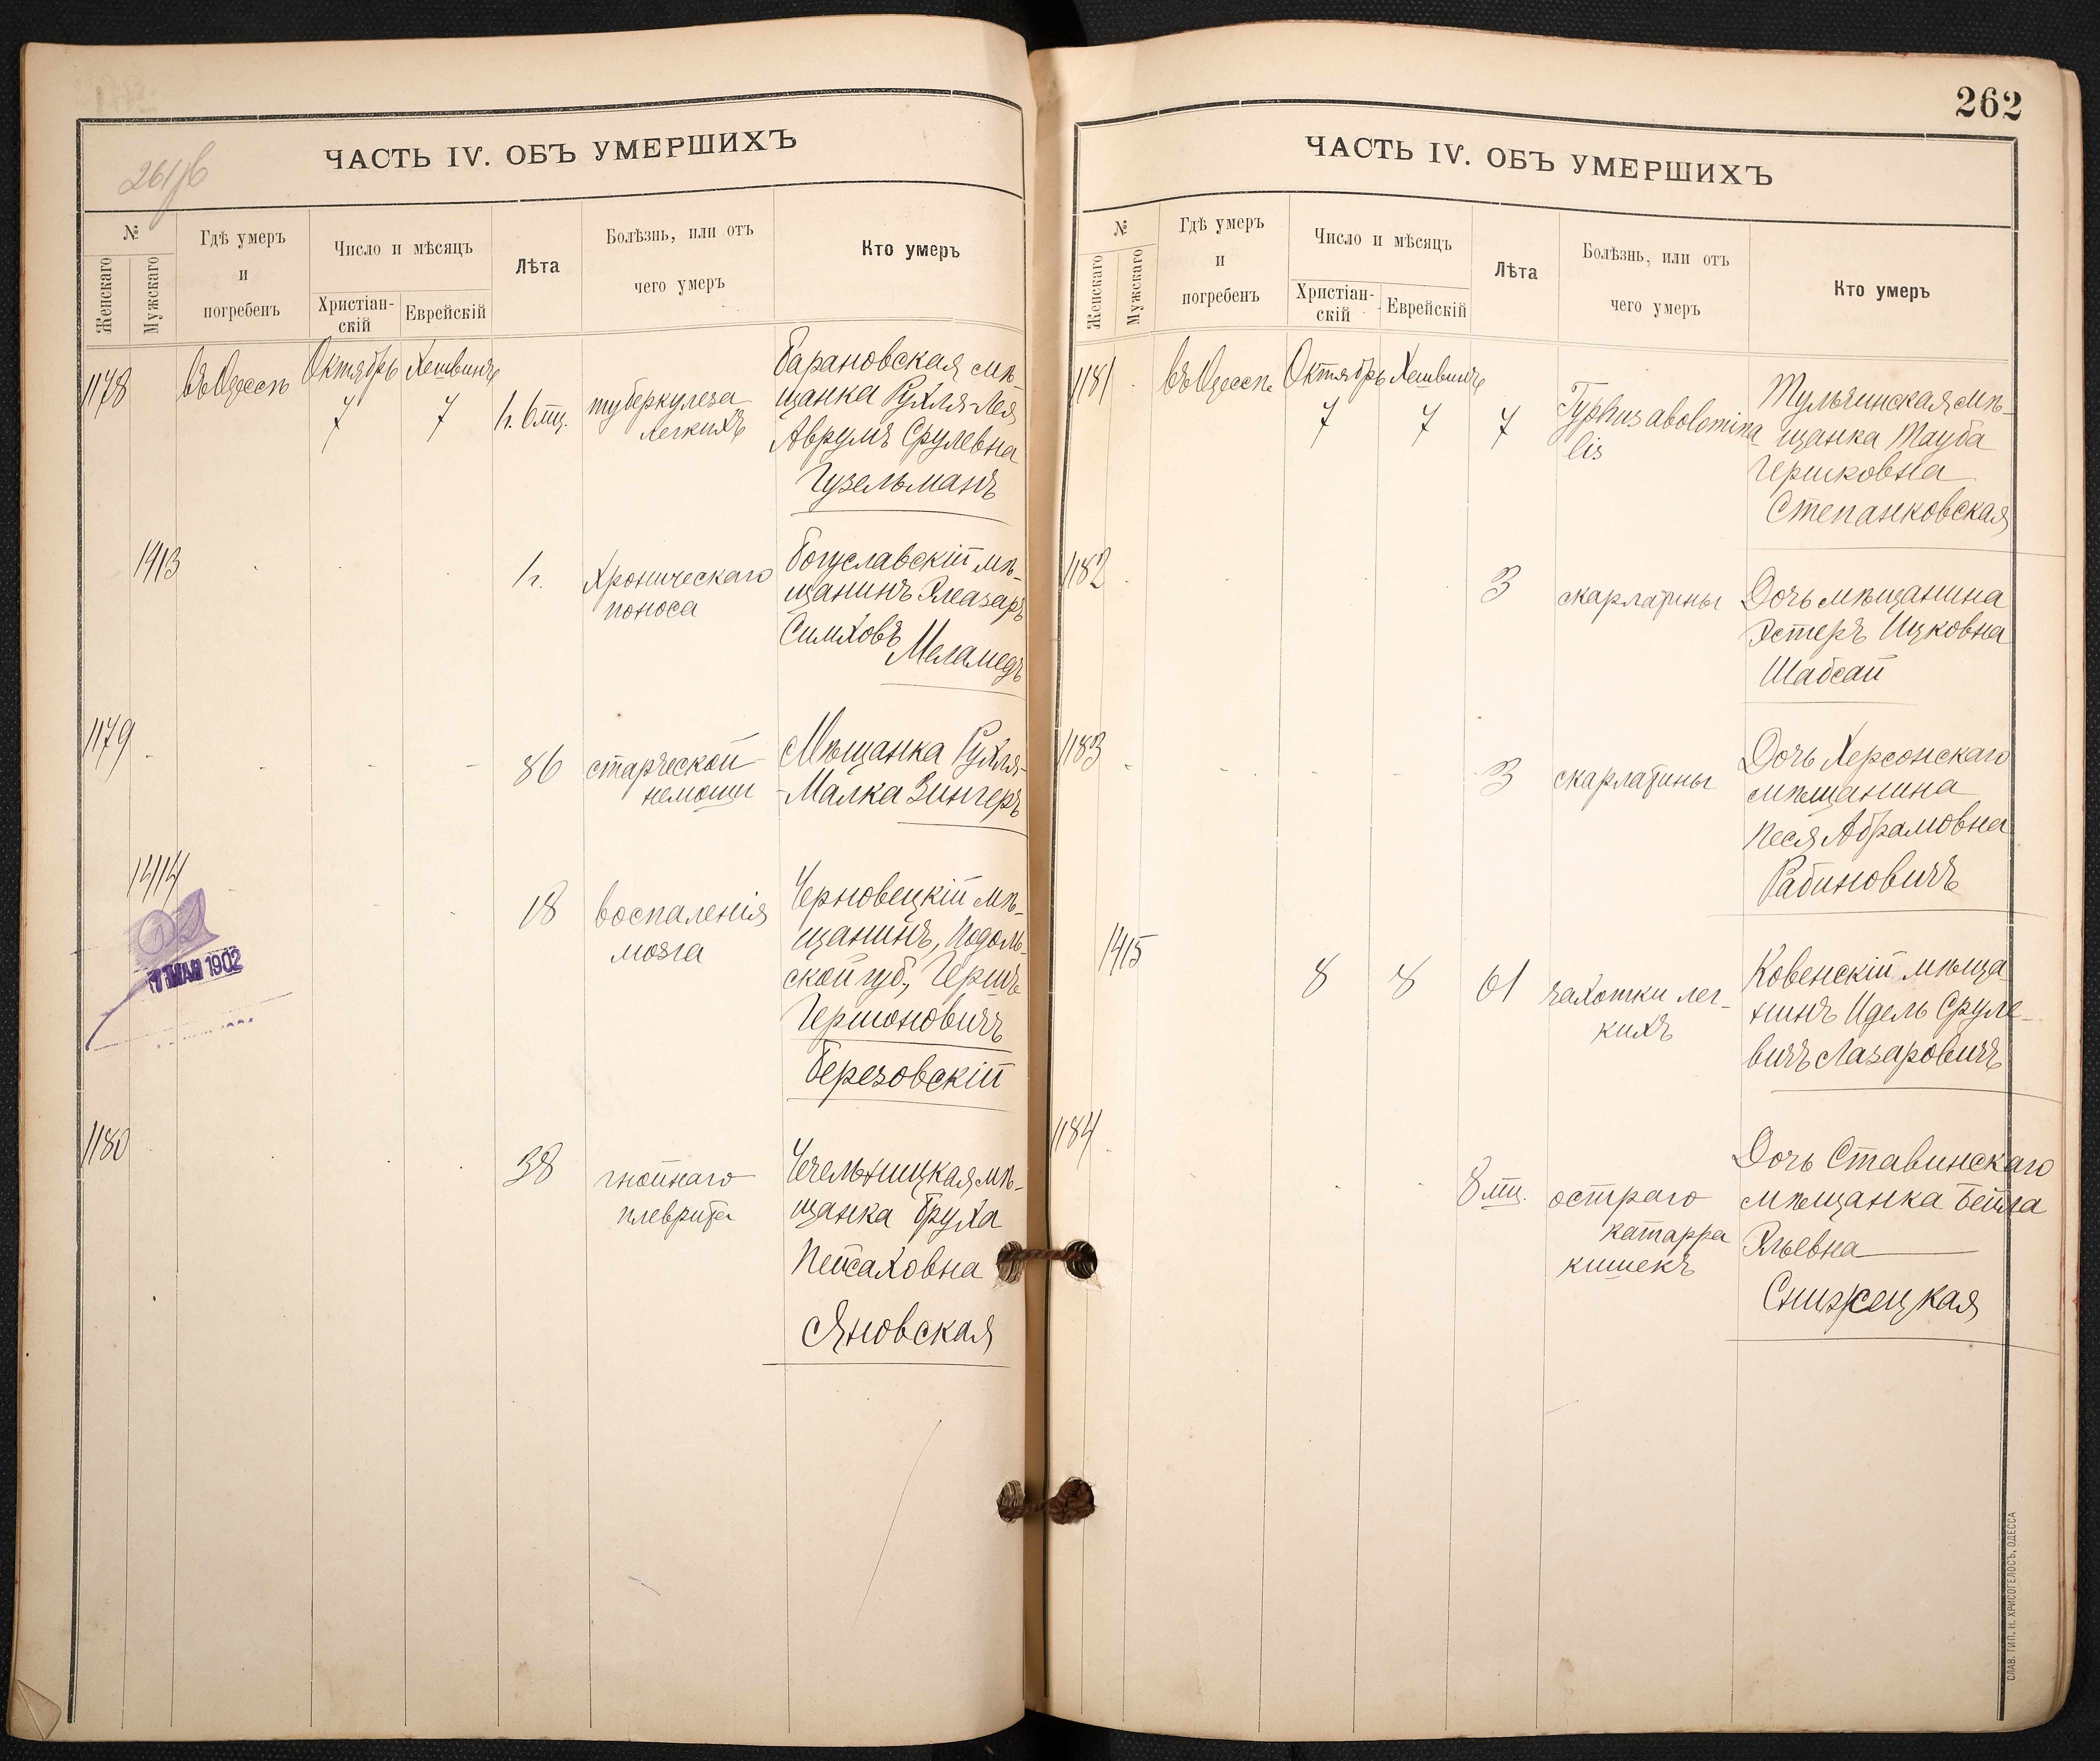 261/б
ЧАСТЬ IV. ОБЪ УМЕРШИХЪ
№
Женскаго
Мужскаго
Гдѣ умеръ
и
погребенъ
Число и мѣсяцъ
Христіан-
скій
Еврейскій
Лѣта
Болѣзнь, или отъ
чего умеръ
Кто умеръ
1178
въ Одессѣ
Октябрь
7
Хешвинъ
7
1 г. 6 мц.
туберкулеза
легкихъ
Барановская мѣ-
щанка Рухля-Лея
Аврумъ Срулевна
Гузельманъ
1413
1 г.
Хроническаго
поноса
Богуславскій мѣ-
щанинъ Элеазаръ
Симховъ
Меламедъ
1179
86
старческой
немощи
Мѣщанка Рухля-
-Малка Зингеръ
1414
МАЯ 1902
18
воспаленія
мозга
Черновецкій мѣ-
щанинъ, Подоль-
ской губ., Гершъ
Гершоновичъ
Березовскій
1180
38
гнойнаго
плеврита
Чечельницкая мѣ-
щанка Бруха
Пейсаховна
Яновская
262
ЧАСТЬ IV. ОБЪ УМЕРШИХЪ
№
Женскаго
Мужскаго
Гдѣ умеръ
и
погребенъ
Число и мѣсяцъ
Христіан-
скій
Еврейскій
Лѣта
Болѣзнь, или отъ
чего умеръ
Кто умеръ
1181
въ Одессѣ
Октябрь
7
Хешвинъ
7
7
Typhus abolomina
lis
Тульчинская мѣ-
щанка Тауба
Гершковна
Степанковская
1182
3
скарлатины
Дочь мѣщанина
Эстеръ Ицковна
Шабсай
1183
3
скарлатины
Дочь Херсонскаго
мѣщанина
Песя Абрамовна
Рабиновичъ
1415
8
8
61
чахотки лег-
кихъ
Ковенскій мѣща-
нинъ Идель Сруле-
вичъ Лазаровичъ
1184
8 мц.
остраго
катарра
кишекъ
Дочь Ставинскаго
мѣщанка Бейла
Эльевна
Снижецкая
СЛАВ. ТИП. Н. ХРИСОГЕЛОСЪ, ОДЕССА